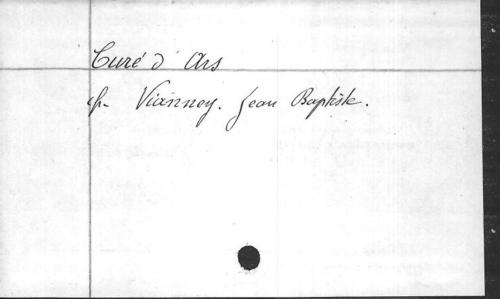 Curé d'Ars
cfr Vianney. Jean Baptiste.